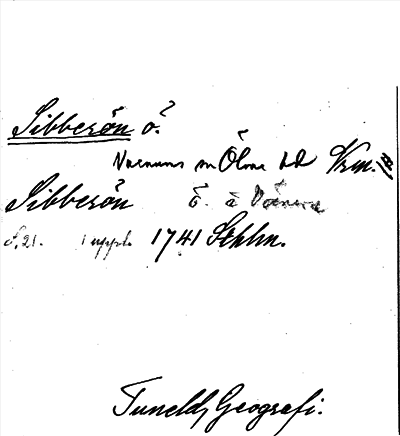 Sibberön ö.
Varnums sn Ölme hd Vrm.
Sibberön Ö. i Vänern
S. 21. 1 uppl. 1741 Sthlm.
Tunelds Geografi.